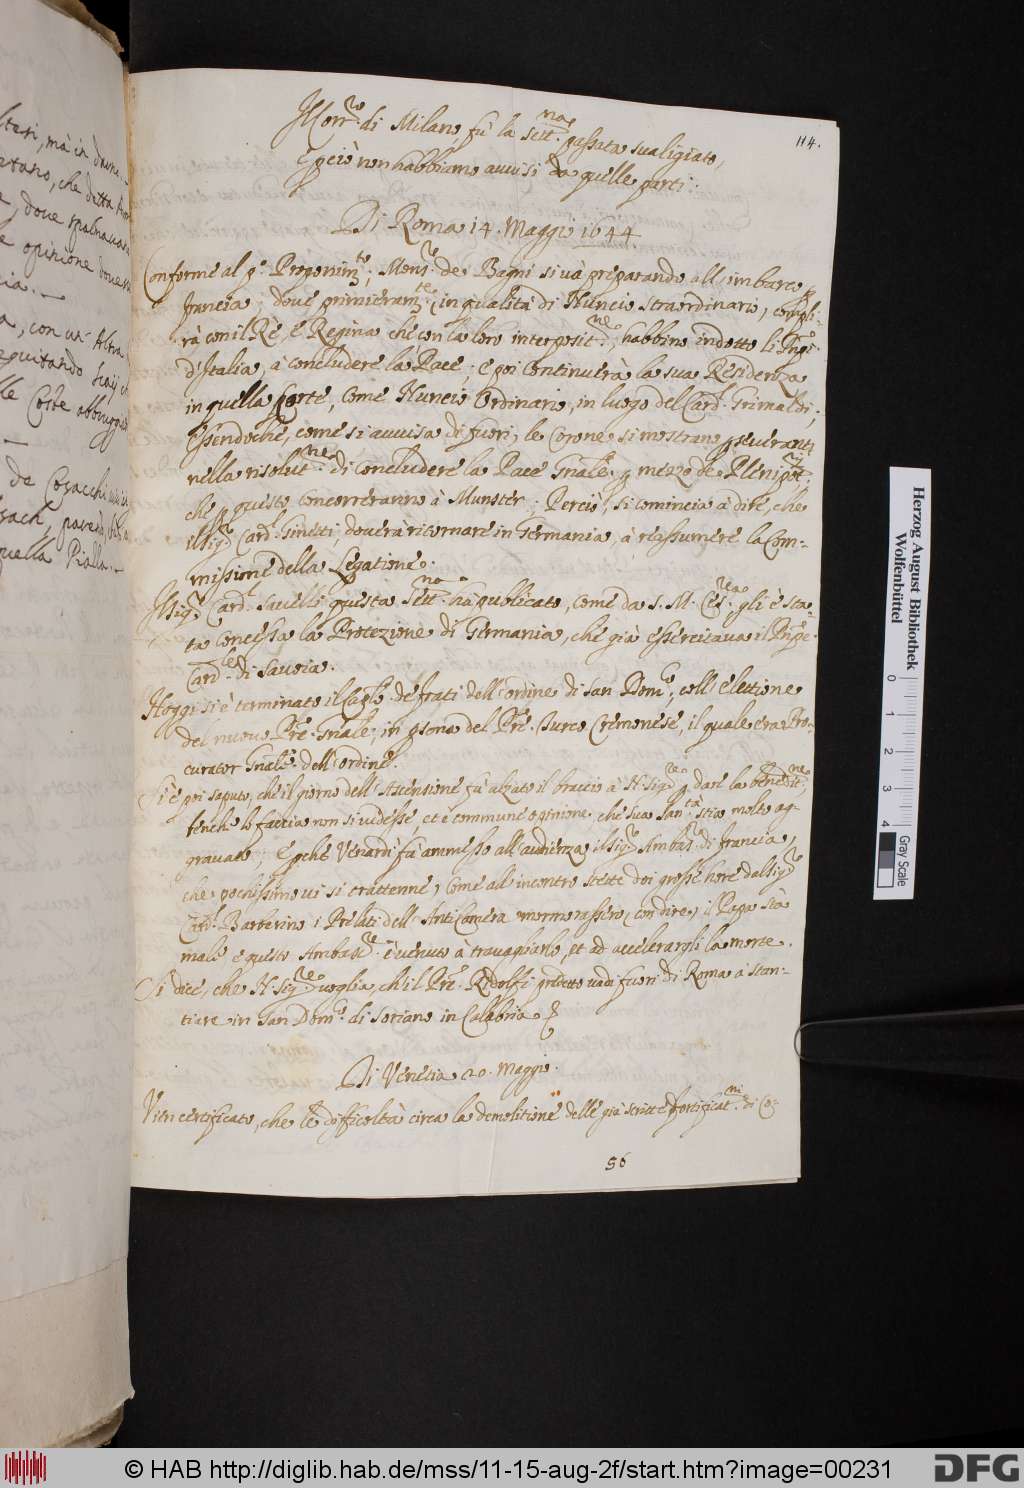 114.
Il Corr.re di Milano, fù la sett.na passata svaligiato,
e perciò non habbiamo avvisi da quelle parti.
Di Roma 14. Maggio 1644.
Conforme al p.o Proponim.to, Mons.r de Bagni si và preparando all'imbarco p
francia, dove primieram.te, in qualità di Nuncio straordinario, compli-
rà con il Rè, e Regina che con la loro interposit.ne, habbino indotto li Prñpi
d'Italia, à concludere la Pace; e poi continuerà la sua Residenza
in quella Corte, come Nuncio Ordinario, in luogo del Card.l Grimaldi;
essendoche, come si avvisa di fuori, le Corone si mostrano perseveranti
nella risolut.ne di concludere la Pace Gñale p mezzo de Plenipot.rij
che p questo concorreranno à Munster; Perciò, si comincia à dire, che
il sig.r Card.l Ginetti, doverà ritornare in Germania, à reassumere la Com-
missione della Legatione.
Il sig.r Card.l Savelli questa sett.na hà publicato, come da S. M. Ces.rea gli è sta-
ta concessa la Protezione di Germania, che già essercitava il Prñpe
Card.le di Savoia.
Hoggi si è terminato il Caplo de frati dell'ordine di San Dom.co, coll'elettione
del nuovo Pre Gñale, in psona del Pre Turco Cremonese, il quale era Pro-
curator Gñale dell'ordine.
Si è poi saputo, che il giorno dell'Ascensione fù alzato il braccio à N. Sig.re p dare la benedit.ne,
benche lo faccia non si vedesse, et è commune opinione, che Sua San.tà stia molto ag-
gravato; e pche Venardi fù ammesso all'audienza il sig.r Ambas.r di francia,
che pochissimo vi si trattenne, come all'incontro stette doi grosse hore dal sig.r
Card.l Barberino i Prelati dell'Anticamera mormorassero, con dire, il Papa stà
male e questo Ambas.re è venuto à travagliarlo, et ad accelerargli la morte.
Si dice, che N. Sig.re voglia, ch'il Pre Ridolfi predetto vadi fuori di Roma à stan-
tiare in San Dom.co di Soriano in Calabria
Di Venetia 20. Maggio.
Vien certificato, che le difficoltà circa la demolitione delle già scritte fortificat.ni di Co-
56
Herzog August Bibliothek
Wolfenbüttel
0 1 2 3 4
Gray Scale
© HAB http://diglib.hab.de/mss/11-15-aug-2f/start.htm?image=00231
DFG